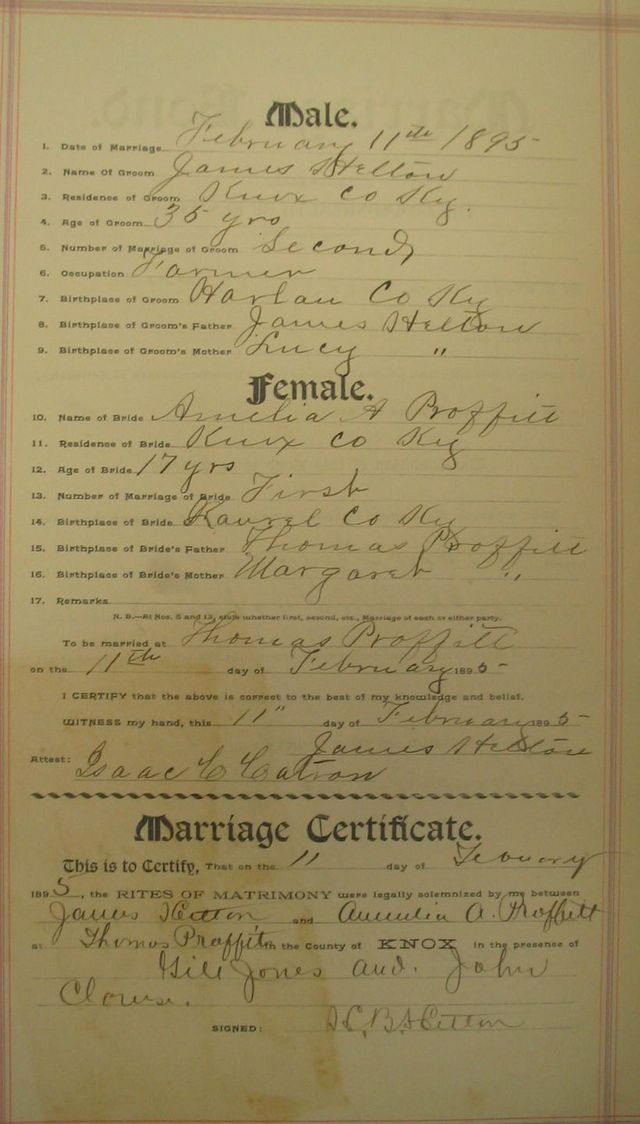 Male.
1. Date of Marriage February 11th 1895
2. Name Of Groom James Helton
3. Residence of Groom Knox Co Ky.
4. Age of Groom 35 yrs
5. Number of Marriage of Groom Second
6. Occupation Farmer
7. Birthplace of Groom Harlan Co Ky
8. Birthplace of Groom's Father James Helton
9. Birthplace of Groom's Mother Lucy "
Female.
10. Name of Bride Amelia A Proffitt
11. Residence of Bride Knox Co Ky
12. Age of Bride 17 yrs
13. Number of Marriage of Bride First
14. Birthplace of Bride Laurel Co Ky
15. Birthplace of Bride's Father Thomas Proffitt
16. Birthplace of Bride's Mother Margaret "
17. Remarks
N. B.—At Nos. 5 and 13, state whether first, second, etc., Marriage of each or either party.
To be married at Thomas Proffitt
on the 11th day of February 1895
I CERTIFY that the above is correct to the best of my knowledge and belief.
WITNESS my hand, this 11" day of February 1895
James Helton
Attest: Isaac C Catron
Marriage Certificate.
This is to Certify, That on the 11 day of Febuary
1895, the RITES OF MATRIMONY were legally solemnized by me between
James Helton and Aumelia A. Proffitt
at Thomas Proffit in the County of KNOX in the presence of
Gill Jones and. John
Clouse.
SIGNED: Helton